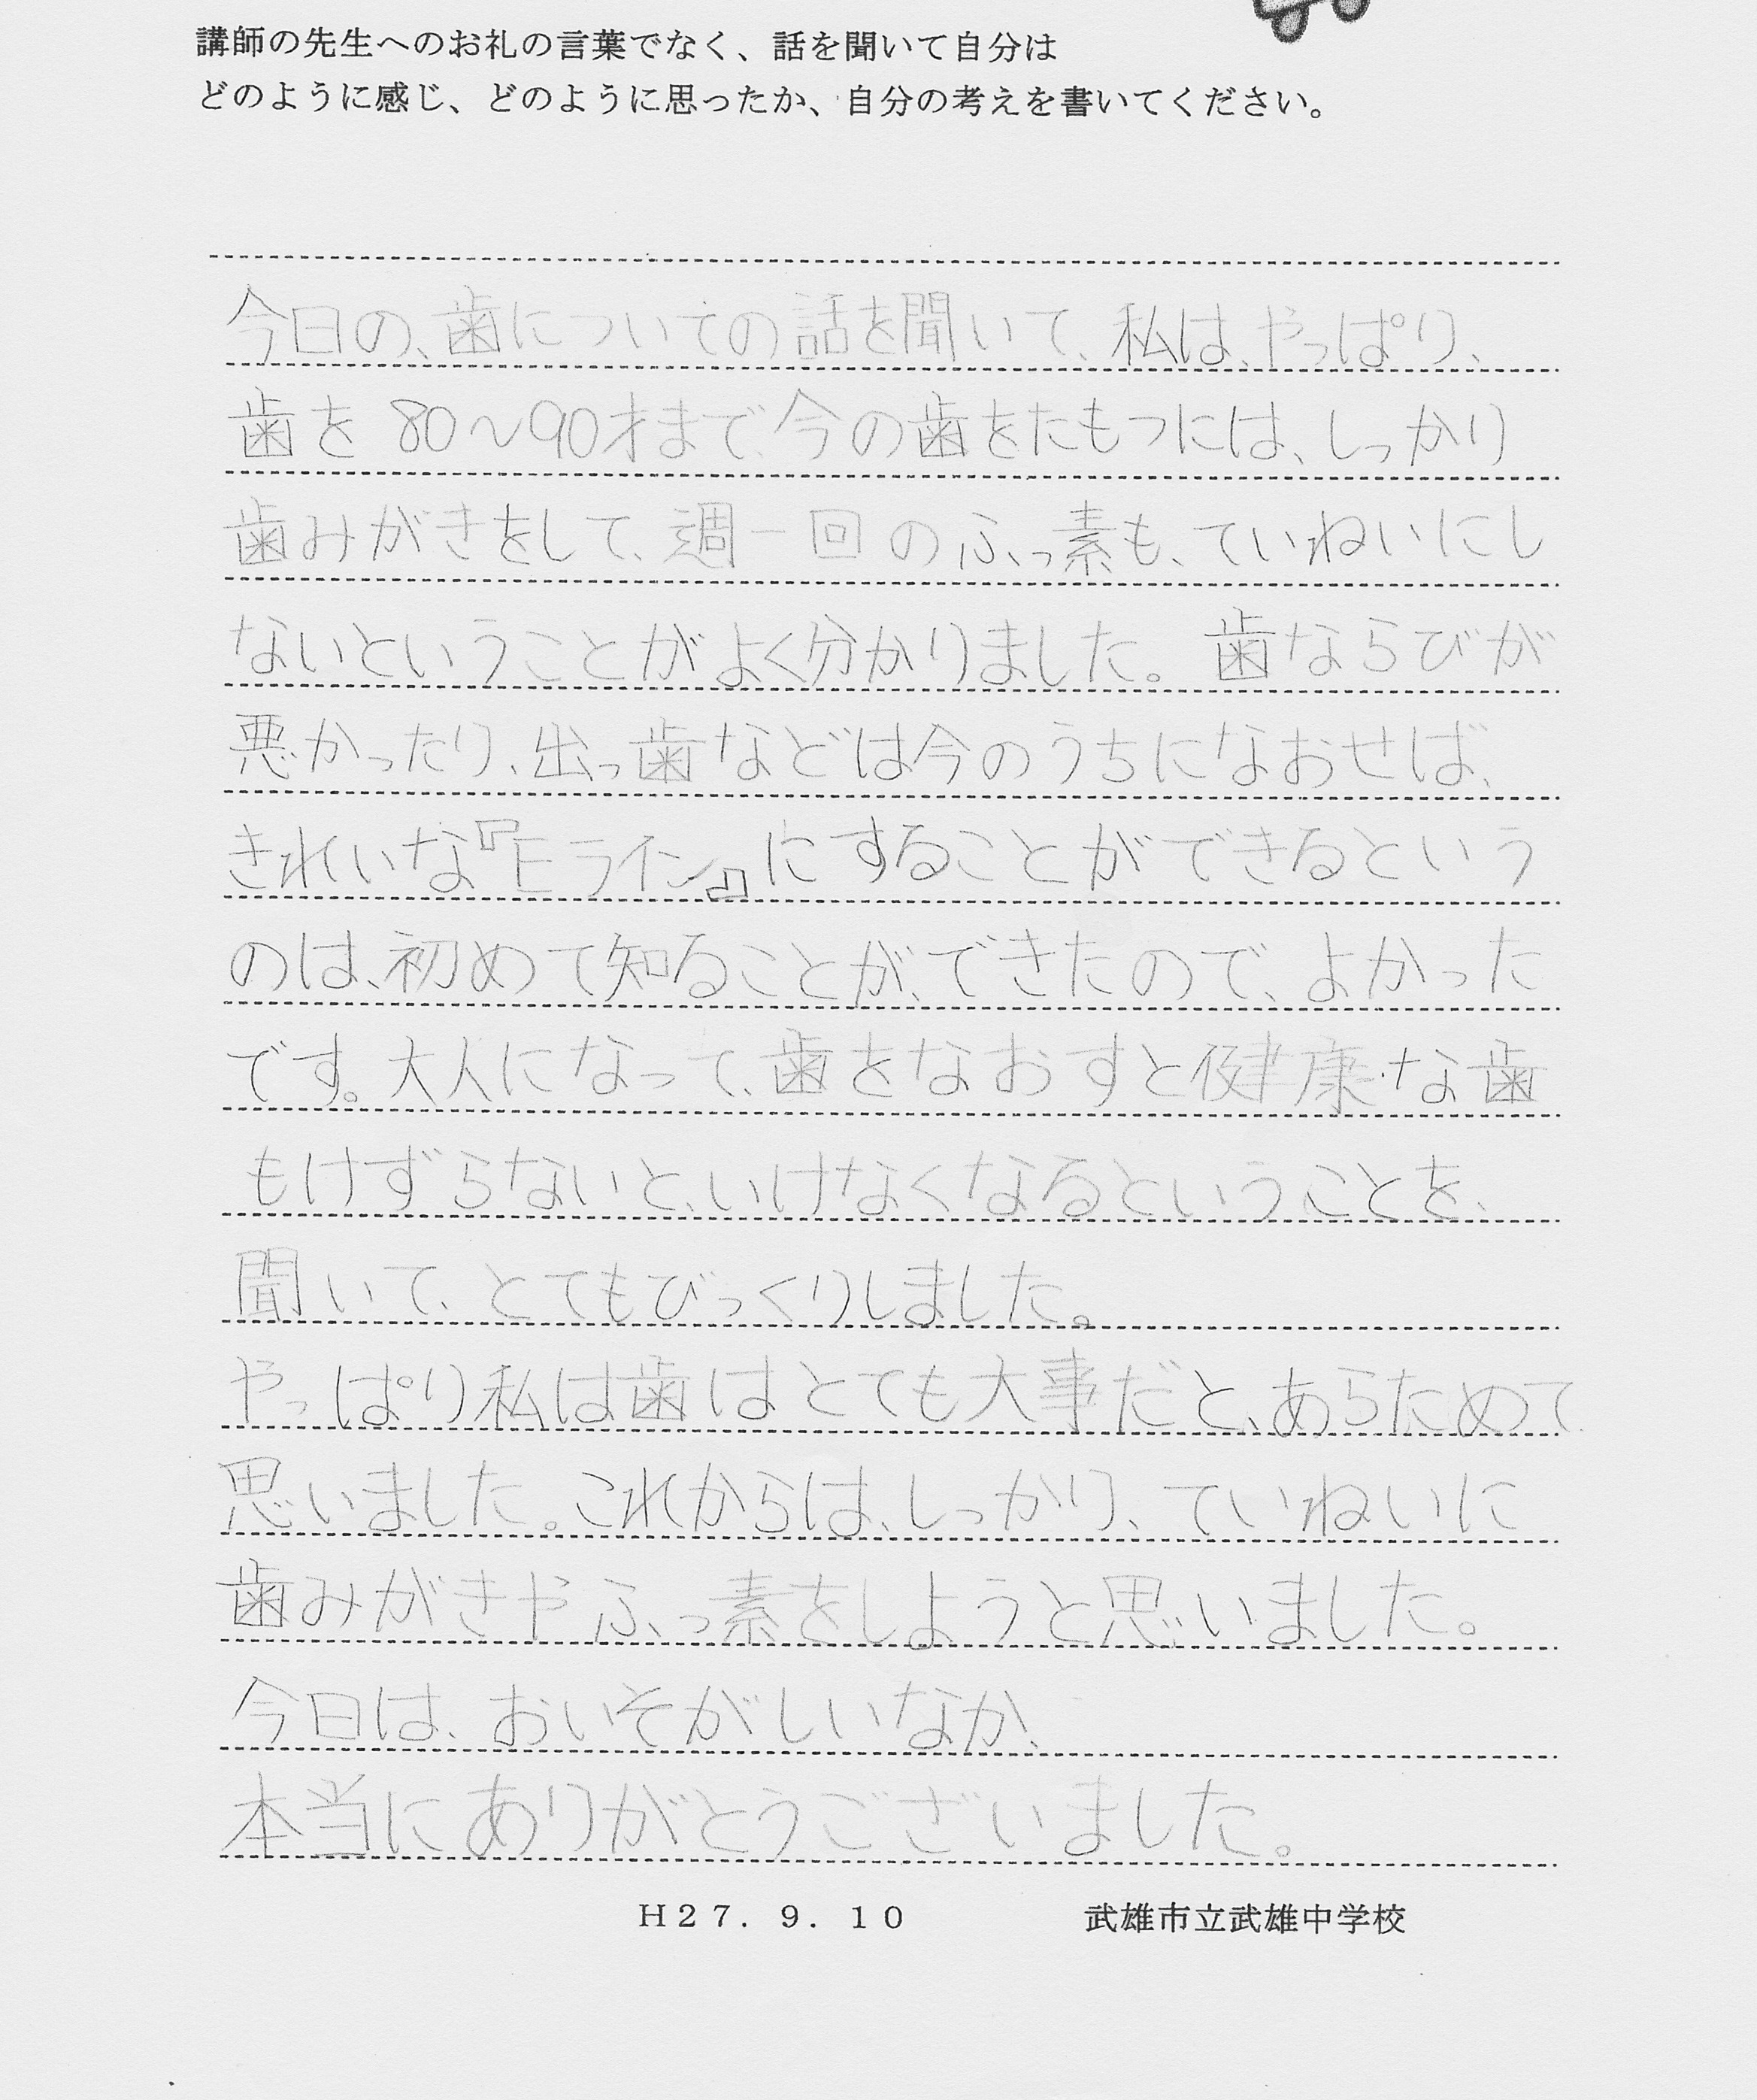 講師の先生へのお礼の言葉でなく、話を聞いて自分は
どのように感じ、どのように思ったか、自分の考えを書いてください。
今日の、歯についての話を聞いて、私は、やっぱり、
歯を80〜90才まで今の歯をたもつには、しっかり
歯みがきをして、週一回のふっ素も、ていねいにし
ないということがよく分かりました。歯ならびが
悪かったり、出っ歯などは今のうちになおせば、
きれいな『Eライン』にすることができるという
のは、初めて知ることが、できたので、よかった
です。大人になって、歯をなおすと健康な歯
もけずらないと、いけなくなるということを、
聞いて、とてもびっくりしました。
やっぱり私は歯はとても大事だと、あらためて
思いました。これからは、しっかり、ていねいに
歯みがきやふっ素をしようと思いました。
今日は、おいそがしいなか、
本当にありがとうございました。
H27.9.10 武雄市立武雄中学校